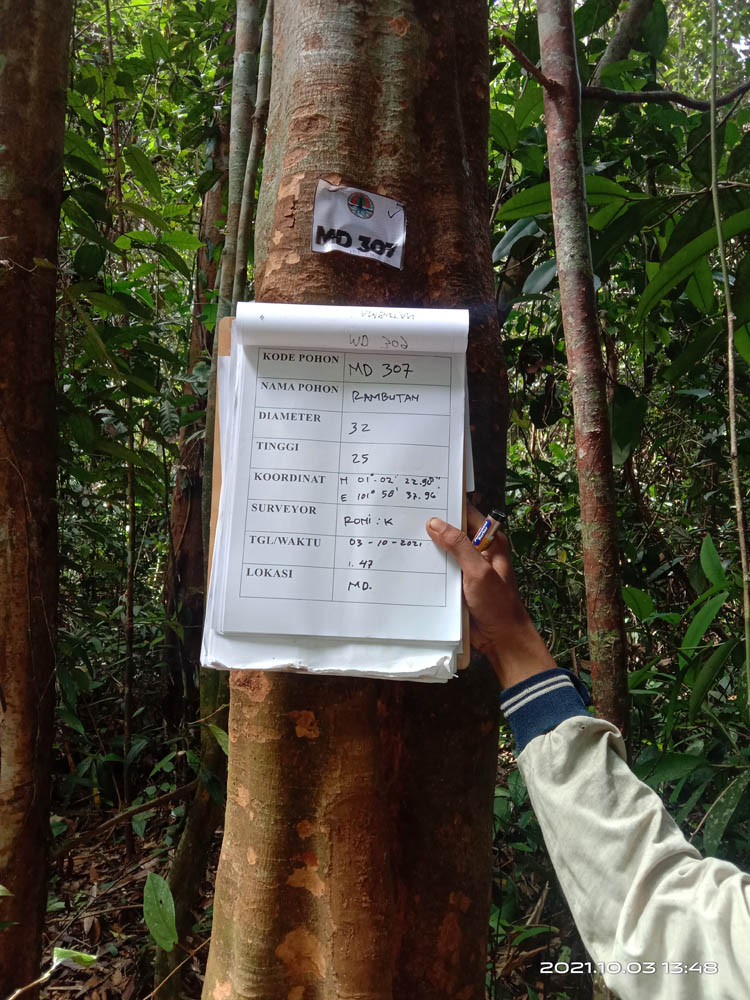 MD 307
KODE POHON MD 307
NAMA POHON RAMBUTAN
DIAMETER 32
TINGGI 25
KOORDINAT N 01°.02' 22.98"
E 101° 58' 37.96"
SURVEYOR ROMI . K
TGL/WAKTU 03 - 10 - 2021
1. 47
LOKASI MD.
2021.10.03 13:48